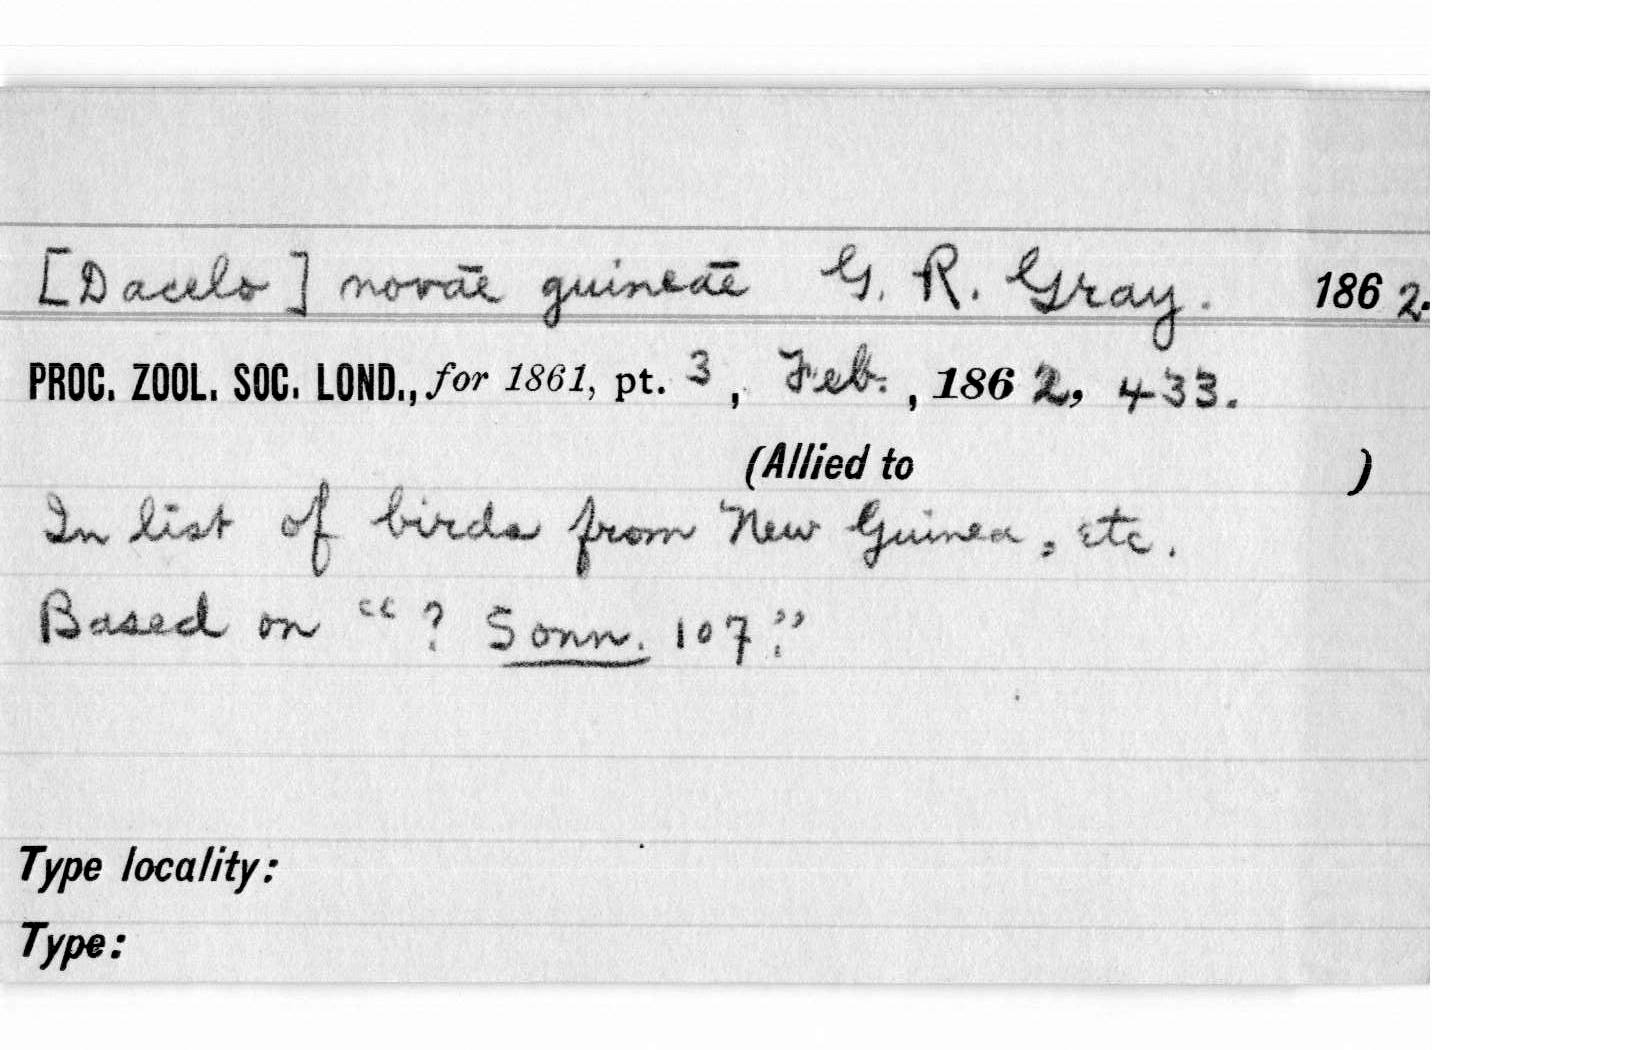 [Dacelo] novae guineae G. R. Gray. 1862.
PROC. ZOOL. SOC. LOND., for 1861, pt. 3, Feb., 1862, 433.
(Allied to )
In list of birds from New Guinea, etc.
Based on "? Sonn. 107."
Type locality:
Type: